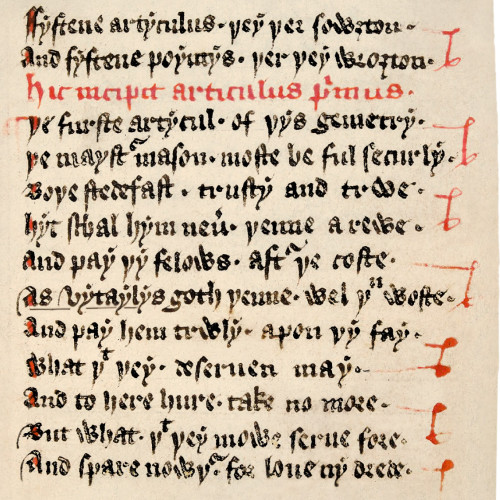 Fyftene artyculus · þey þer sowȝton ·
And fyftene poyntys · þer þey wroȝton ·
Hic incipit articulus pⁱmus ·
Þe furste artycul · of þys gemetry ·
Þe maystʳ mason · moste be ful securly ·
Boþe stedefast · trusty and trwe ·
Hyt schal hym neuʳ · þenne arewe ·
And pay þy felows · aftʳ þe coste ·
As vytaylys goth þenne · wel þᵘ woste ·
And pay hem trwly · apon þy fay ·
What þᵗ þey · deseruen may ·
And to here hure · take no more ·
But what · þᵗ þey mowe serue fore ·
And spare nowþʳ · for loue ny drede ·